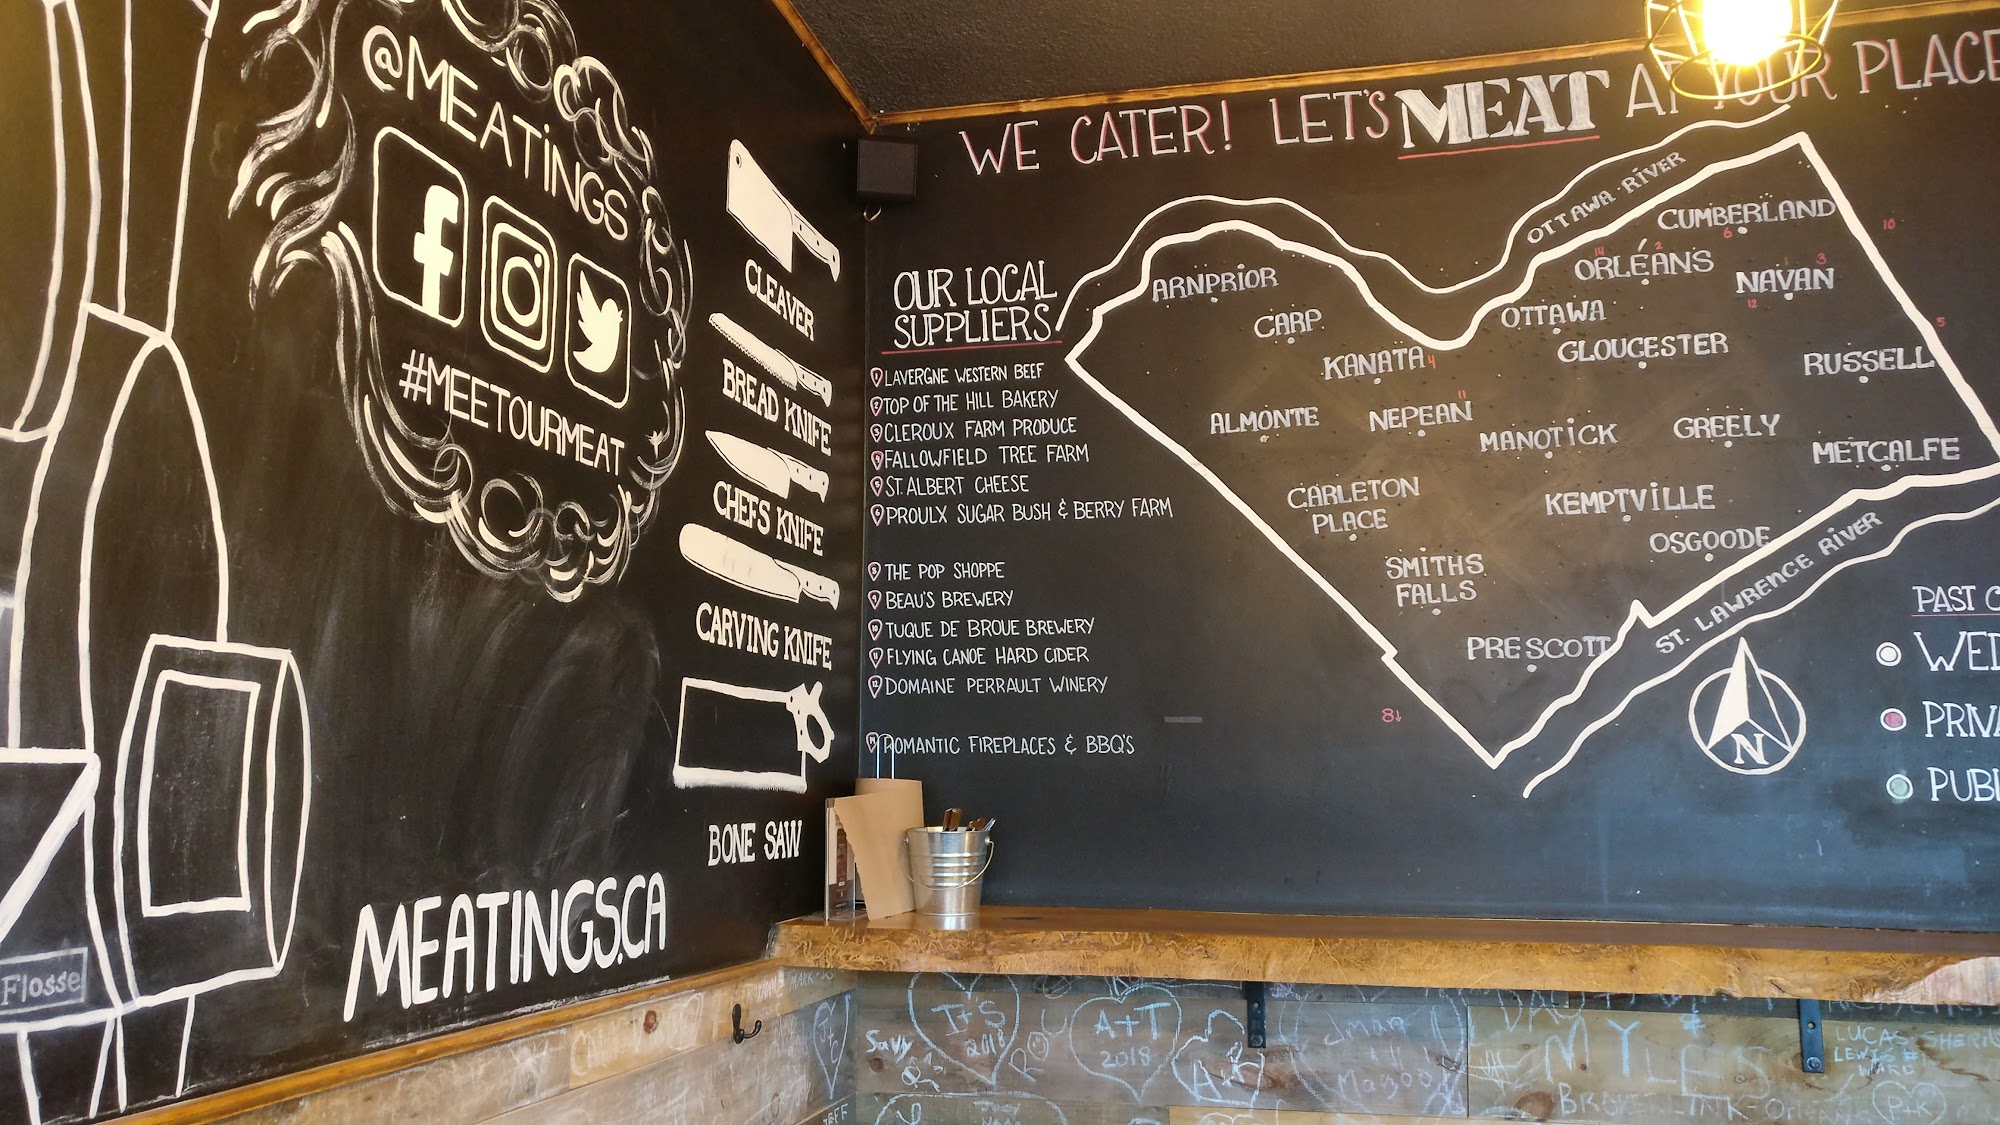 @MEATiNGS
#MEETOURMEAT
CLEAVER
BREAD KNIFE
CHEFS KNIFE
CARVING KNIFE
BONE SAW
MEATINGS.CA
Flosse
WE CATER! LET'S MEAT AT YOUR PLACE
OUR LOCAL
SUPPLIERS
1 LAVERGNE WESTERN BEEF
2 TOP OF THE HILL BAKERY
3 CLEROUX FARM PRODUCE
4 FALLOWFIELD TREE FARM
5 ST. ALBERT CHEESE
6 PROULX SUGAR BUSH & BERRY FARM
8 THE POP SHOPPE
9 BEAU'S BREWERY
10 TUQUE DE BROUE BREWERY
11 FLYING CANOE HARD CIDER
12 DOMAINE PERRAULT WINERY
14 ROMANTIC FIREPLACES & BBQ'S
OTTAWA RiVER
CUMBERLAND
6
10
14
2
ORLÉANS
1
3
NAVAN
12
ARNPRiOR
OTTAWA
CARP
5
GLOUCESTER
KANATA 4
RUSSELL
ALMONTE
11
NEPEAN
MANOTiCK
GREELY
METCALFE
CARLETON
PLACE
KEMPTViLLE
OSGOODE
SMiTHS
FALLS
PRESCOTT
ST. LAWRENCE RiVER
8↓
N
PAST C
WED
PRIVA
PUBL
Savy
J+S
2018
A+T
2018
A+K
Jman
MYLES
LUCAS-SHERI
LEWIS #
WARD
P+K